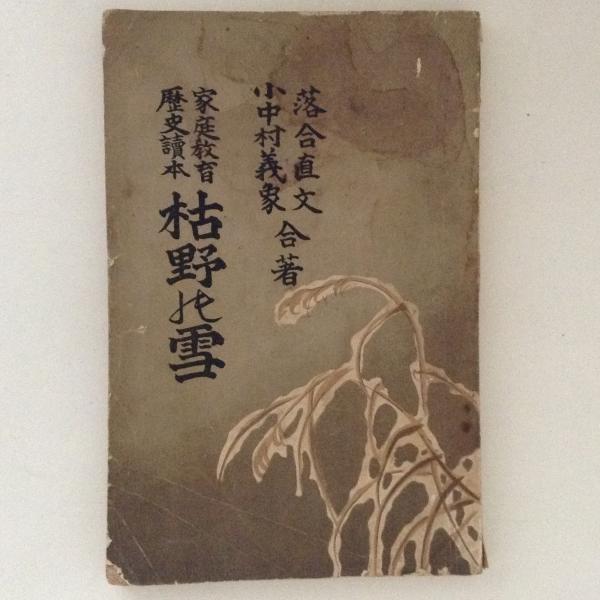 落合直文
小中村義象
合著
家庭教育
歷史讀本
枯野の雪